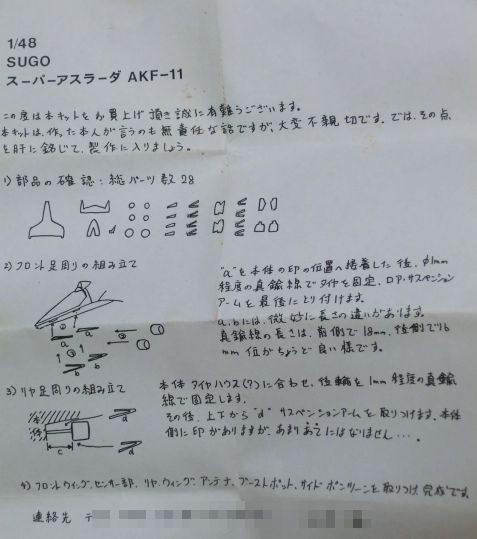 1/48
SUGO
スーパーアスラーダ AKF-11
この度は本キットをお買上げ頂き誠に有難うございます。
本キットは、作った本人が言うのも無責任な話ですが、大変不親切です。では、その点
を肝に銘じて、製作に入りましょう。
1) 部品の確認：総パーツ数28
2) フロント足周りの組み立て
"a"を本体の印の位置へ接着した後、φ1mm
程度の真鍮線でタイヤを固定、ロア・サスペンション
アームを最後にとり付けます。
a, bには、微妙に長さの違いがあります。
真鍮線の長さは、前側で18mm、後側で16
mm位がちょうど良い様です。
a
a
b
b
3) リヤ足周りの組み立て
本体タイヤハウス(?)に合わせ、後輪を1mm程度の真鍮
線で固定します。
その後、上下から"d"サスペンションアームを取りつけます。本体
側に印がありますが、あまりあてにはなりません…。
本体
c
d
d
4) フロントウイング、センサー部、リヤ・ウィング、アンテナ、ブーストポット、サイドポンツーンを取りつけ完成です。
連絡先 〒